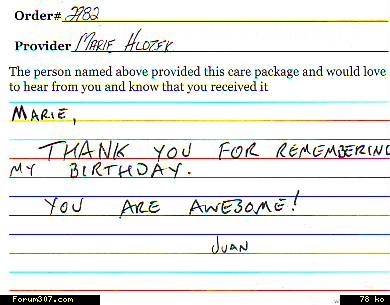 Order# 2982
Provider MARIE HLOZEK
The person named above provided this care package and would love
to hear from you and know that you received it
MARIE,
THANK YOU FOR REMEMBERING
MY BIRTHDAY.
YOU ARE AWESOME!
JUAN
Forum307.com 78 ko